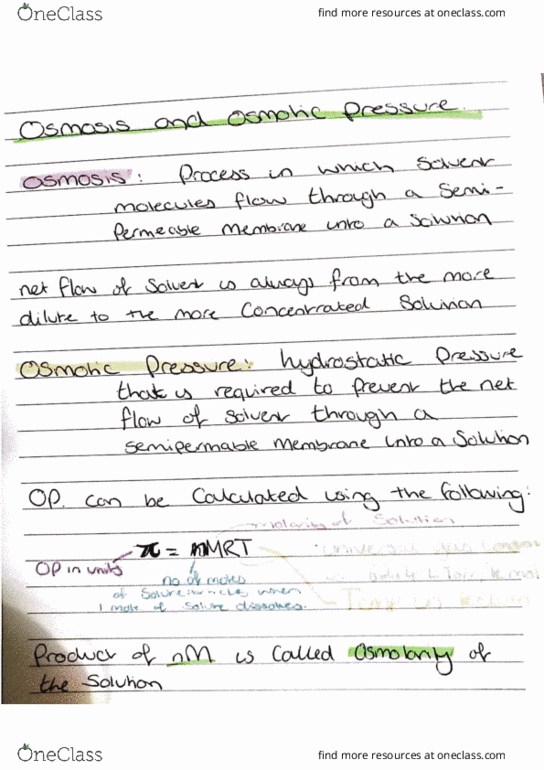 OneClass
find more resources at oneclass.com
Osmosis and Osmotic Pressure.
Osmosis: Process in which solvent
molecules flow through a semi-
permeable membrane into a solution
net flow of solvent is always from the more
dilute to the more concentrated solution
Osmotic Pressure: hydrostatic pressure
that is required to prevent the net
flow of solvent through a
semipermable membrane into a solution
OP. can be calculated using the following:
molarity of solution
π = nMRT
OP in units
no of moles
of solute when
1 mole of solute dissolves.
Temp in Kelvin
Product of nM is called Osmolarity of
the solution
OneClass
find more resources at oneclass.com